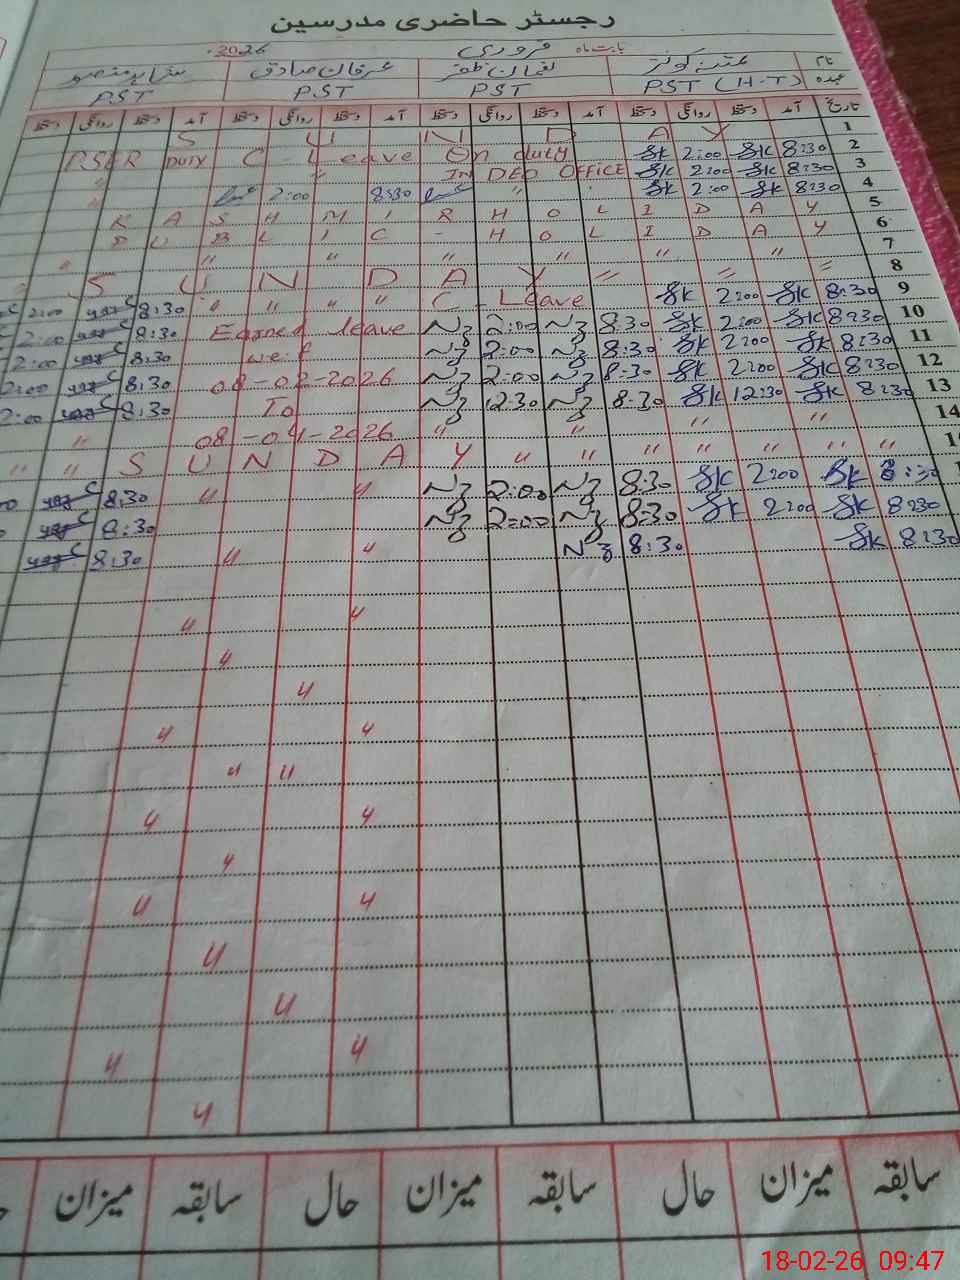 رجسٹر حاضری مدرسین
بابت ماہ فروری 2026
نام کوثر لقمان ظفر عرفان صادق
عہدہ PST (H.T) PST PST PST
تاریخ آمد دستخط روانگی دستخط آمد دستخط روانگی دستخط آمد دستخط روانگی دستخط آمد دستخط روانگی دستخط
S U N D A Y 1
PSER Duty C - Leave On duty Sk 2:00 Sk 8:30 2
" " IN DEO OFFICE Sk 2:00 Sk 8:30 3
" 2:00 8:30 " Sk 2:00 Sk 8:30 4
K A S H M I R H O L I D A Y 5
P U B L I C - H O L I D A Y 6
" " " " " " " 7
S U N D A Y = = = 8
2:00 8:30 " " " " C - Leave Sk 2:00 Sk 8:30 9
2:00 8:30 Earned leave Nz 2:00 Nz 8:30 Sk 2:00 Sk 8:30 10
2:00 8:30 w.e.f Nz 2:00 Nz 8:30 Sk 2:00 Sk 8:30 11
2:00 8:30 08-02-2026 Nz 2:00 Nz 8:30 Sk 2:00 Sk 8:30 12
2:00 8:30 To Nz 12:30 Nz 8:30 Sk 12:30 Sk 8:30 13
" 08-04-2026 " " " " 14
" " S U N D A Y " " " " " " "
8:30 " " Nz 2:00 Nz 8:30 Sk 2:00 Sk 8:30
8:30 Nz 2:00 Nz 8:30 Sk 2:00 Sk 8:30
8:30 " " Nz 8:30 Sk 8:30
" "
"
"
" "
" "
" "
"
" "
"
"
" "
"
سابقہ میزان حال سابقہ میزان حال سابقہ میزان
18-02-26 09:47